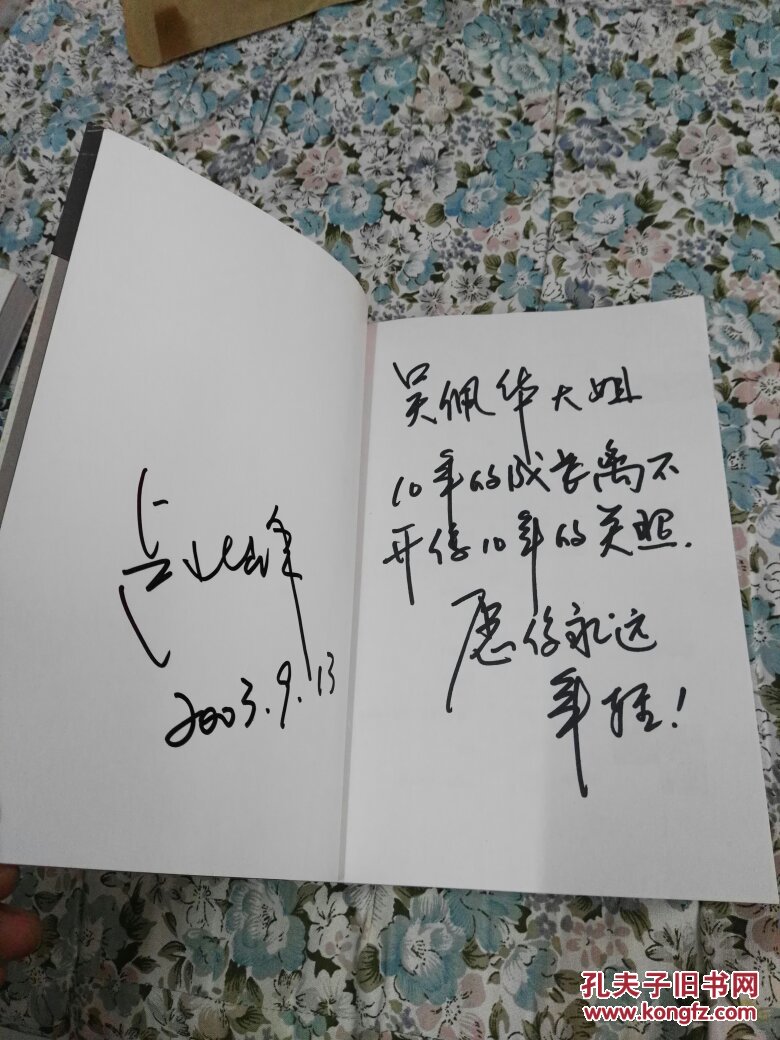 2003.9.13
吴佩华大姐
10年的成长离不
开你10年的关照.
愿你永远
年轻!
孔夫子旧书网
www.kongfz.com